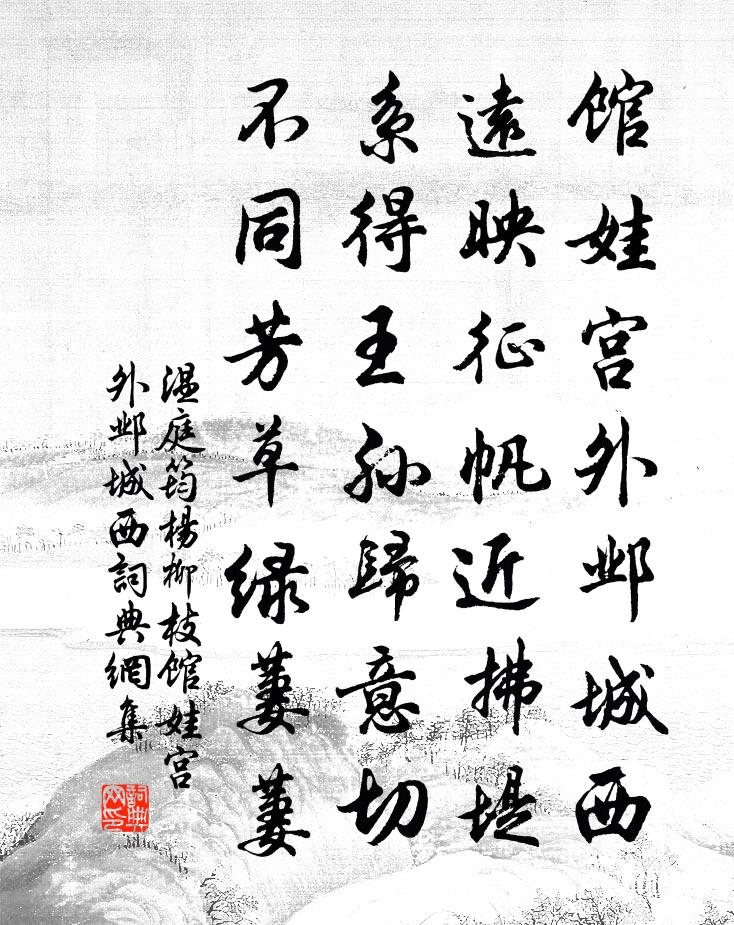 馆娃宫外邺城西
遠映征帆近拂堤
系得王孙歸意切
不同芳草绿萋萋
温庭筠楊柳枝馆娃宫
外邺城西詞典網集
詞典网印